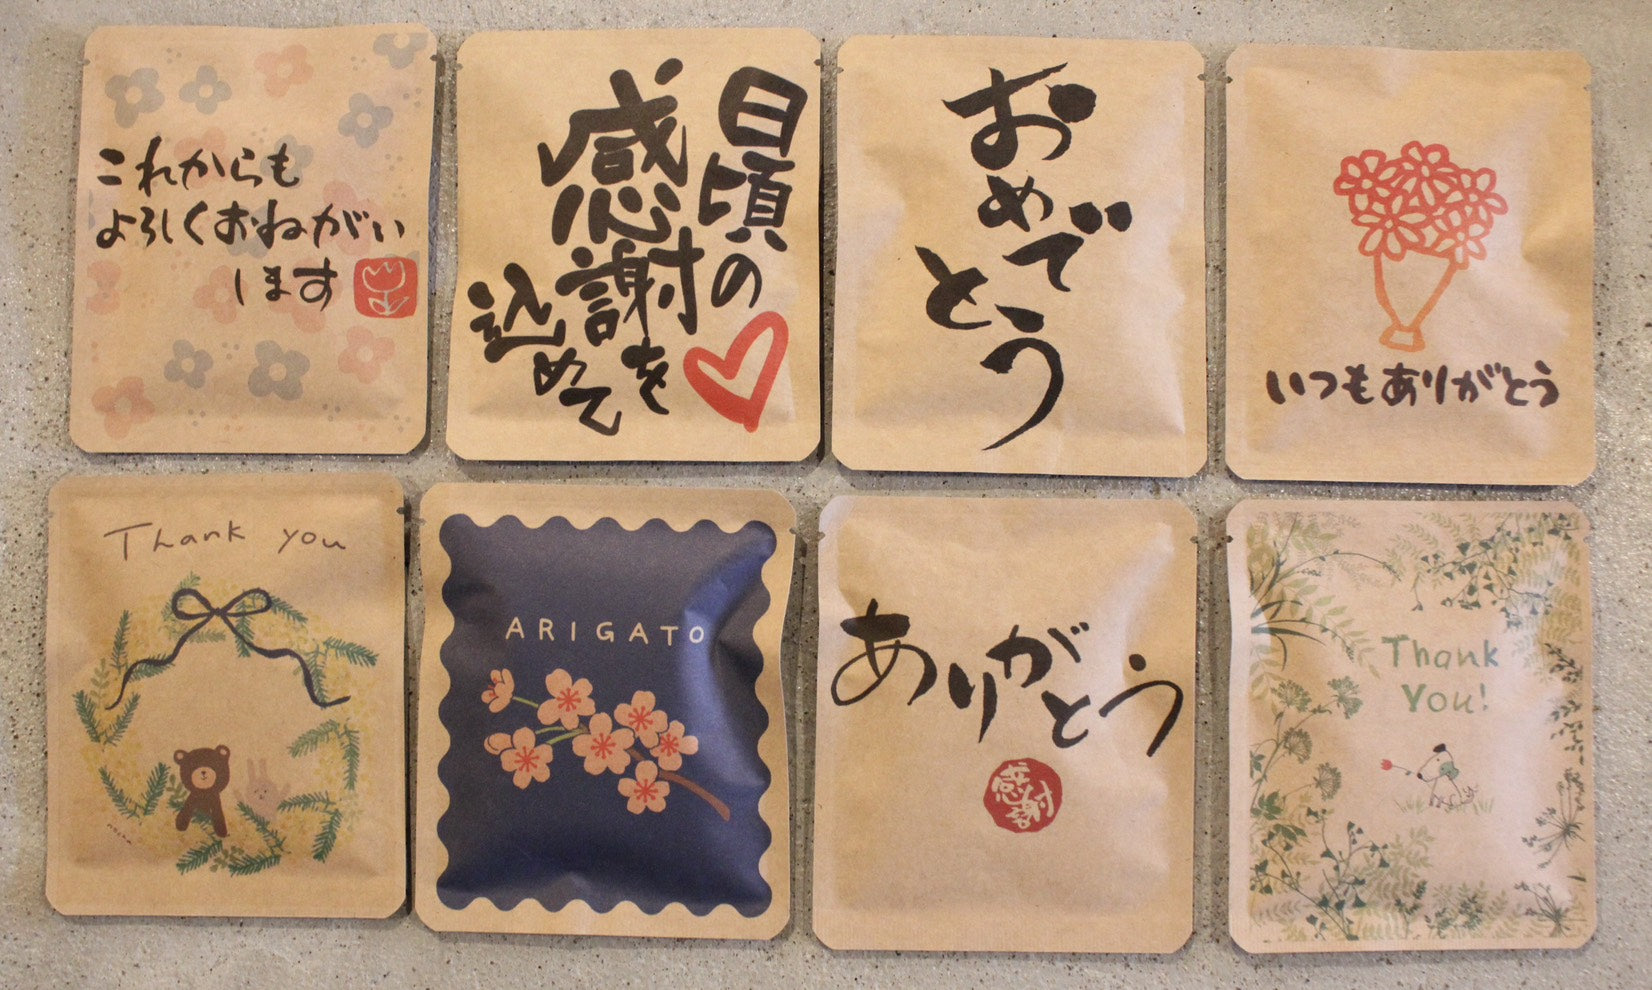 これからも
よろしくおねがい
します
日頃の
感謝を
込めて
おめで
とう
いつもありがとう
Thank you
ARIGATO
ありがとう
感謝
Thank
You!